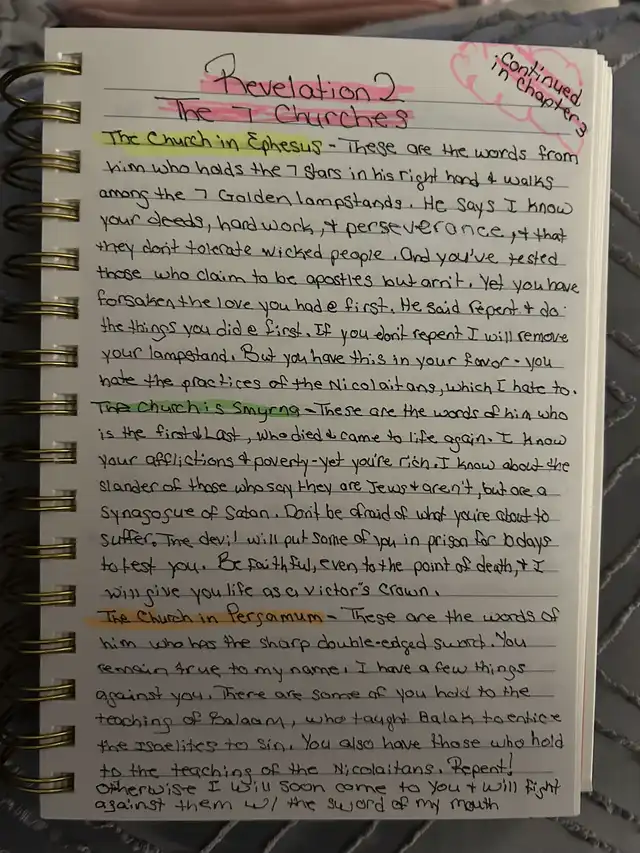 Revelation 2
Continued
in Chapter 3
The 7 Churches
The Church in Ephesus - These are the words from
him who holds the 7 stars in his right hand & walks
among the 7 Golden lampstands. He says I know
your deeds, hard work, & perseverance, & that
they don't tolerate wicked people. And you've tested
those who claim to be apostles but arn't. Yet you have
forsaken the love you had @ first. He said repent & do
the things you did @ first. If you don't repent I will remove
your lampstand. But you have this in your favor - you
hate the practices of the Nicolaitans, which I hate to.
The Church is Smyrna - These are the words of him who
is the first & Last, who died & came to life again. I know
your afflictions & poverty - yet you're rich. I know about the
slander of those who say they are Jews & aren't, but are a
synagogue of Satan. Don't be afraid of what you're about to
suffer. The devil will put some of you in prison for 10 days
to test you. Be faithful, even to the point of death, & I
will give you life as a victor's crown.
The Church in Pergamum - These are the words of
him who has the sharp double-edged sword. You
remain true to my name. I have a few things
against you. There are some of you hold to the
teaching of Balaam, who taught Balak to entice
the Israelites to sin. You also have those who hold
to the teaching of the Nicolaitans. Repent!
Otherwise I will soon come to you & will fight
against them w/ the sword of my mouth